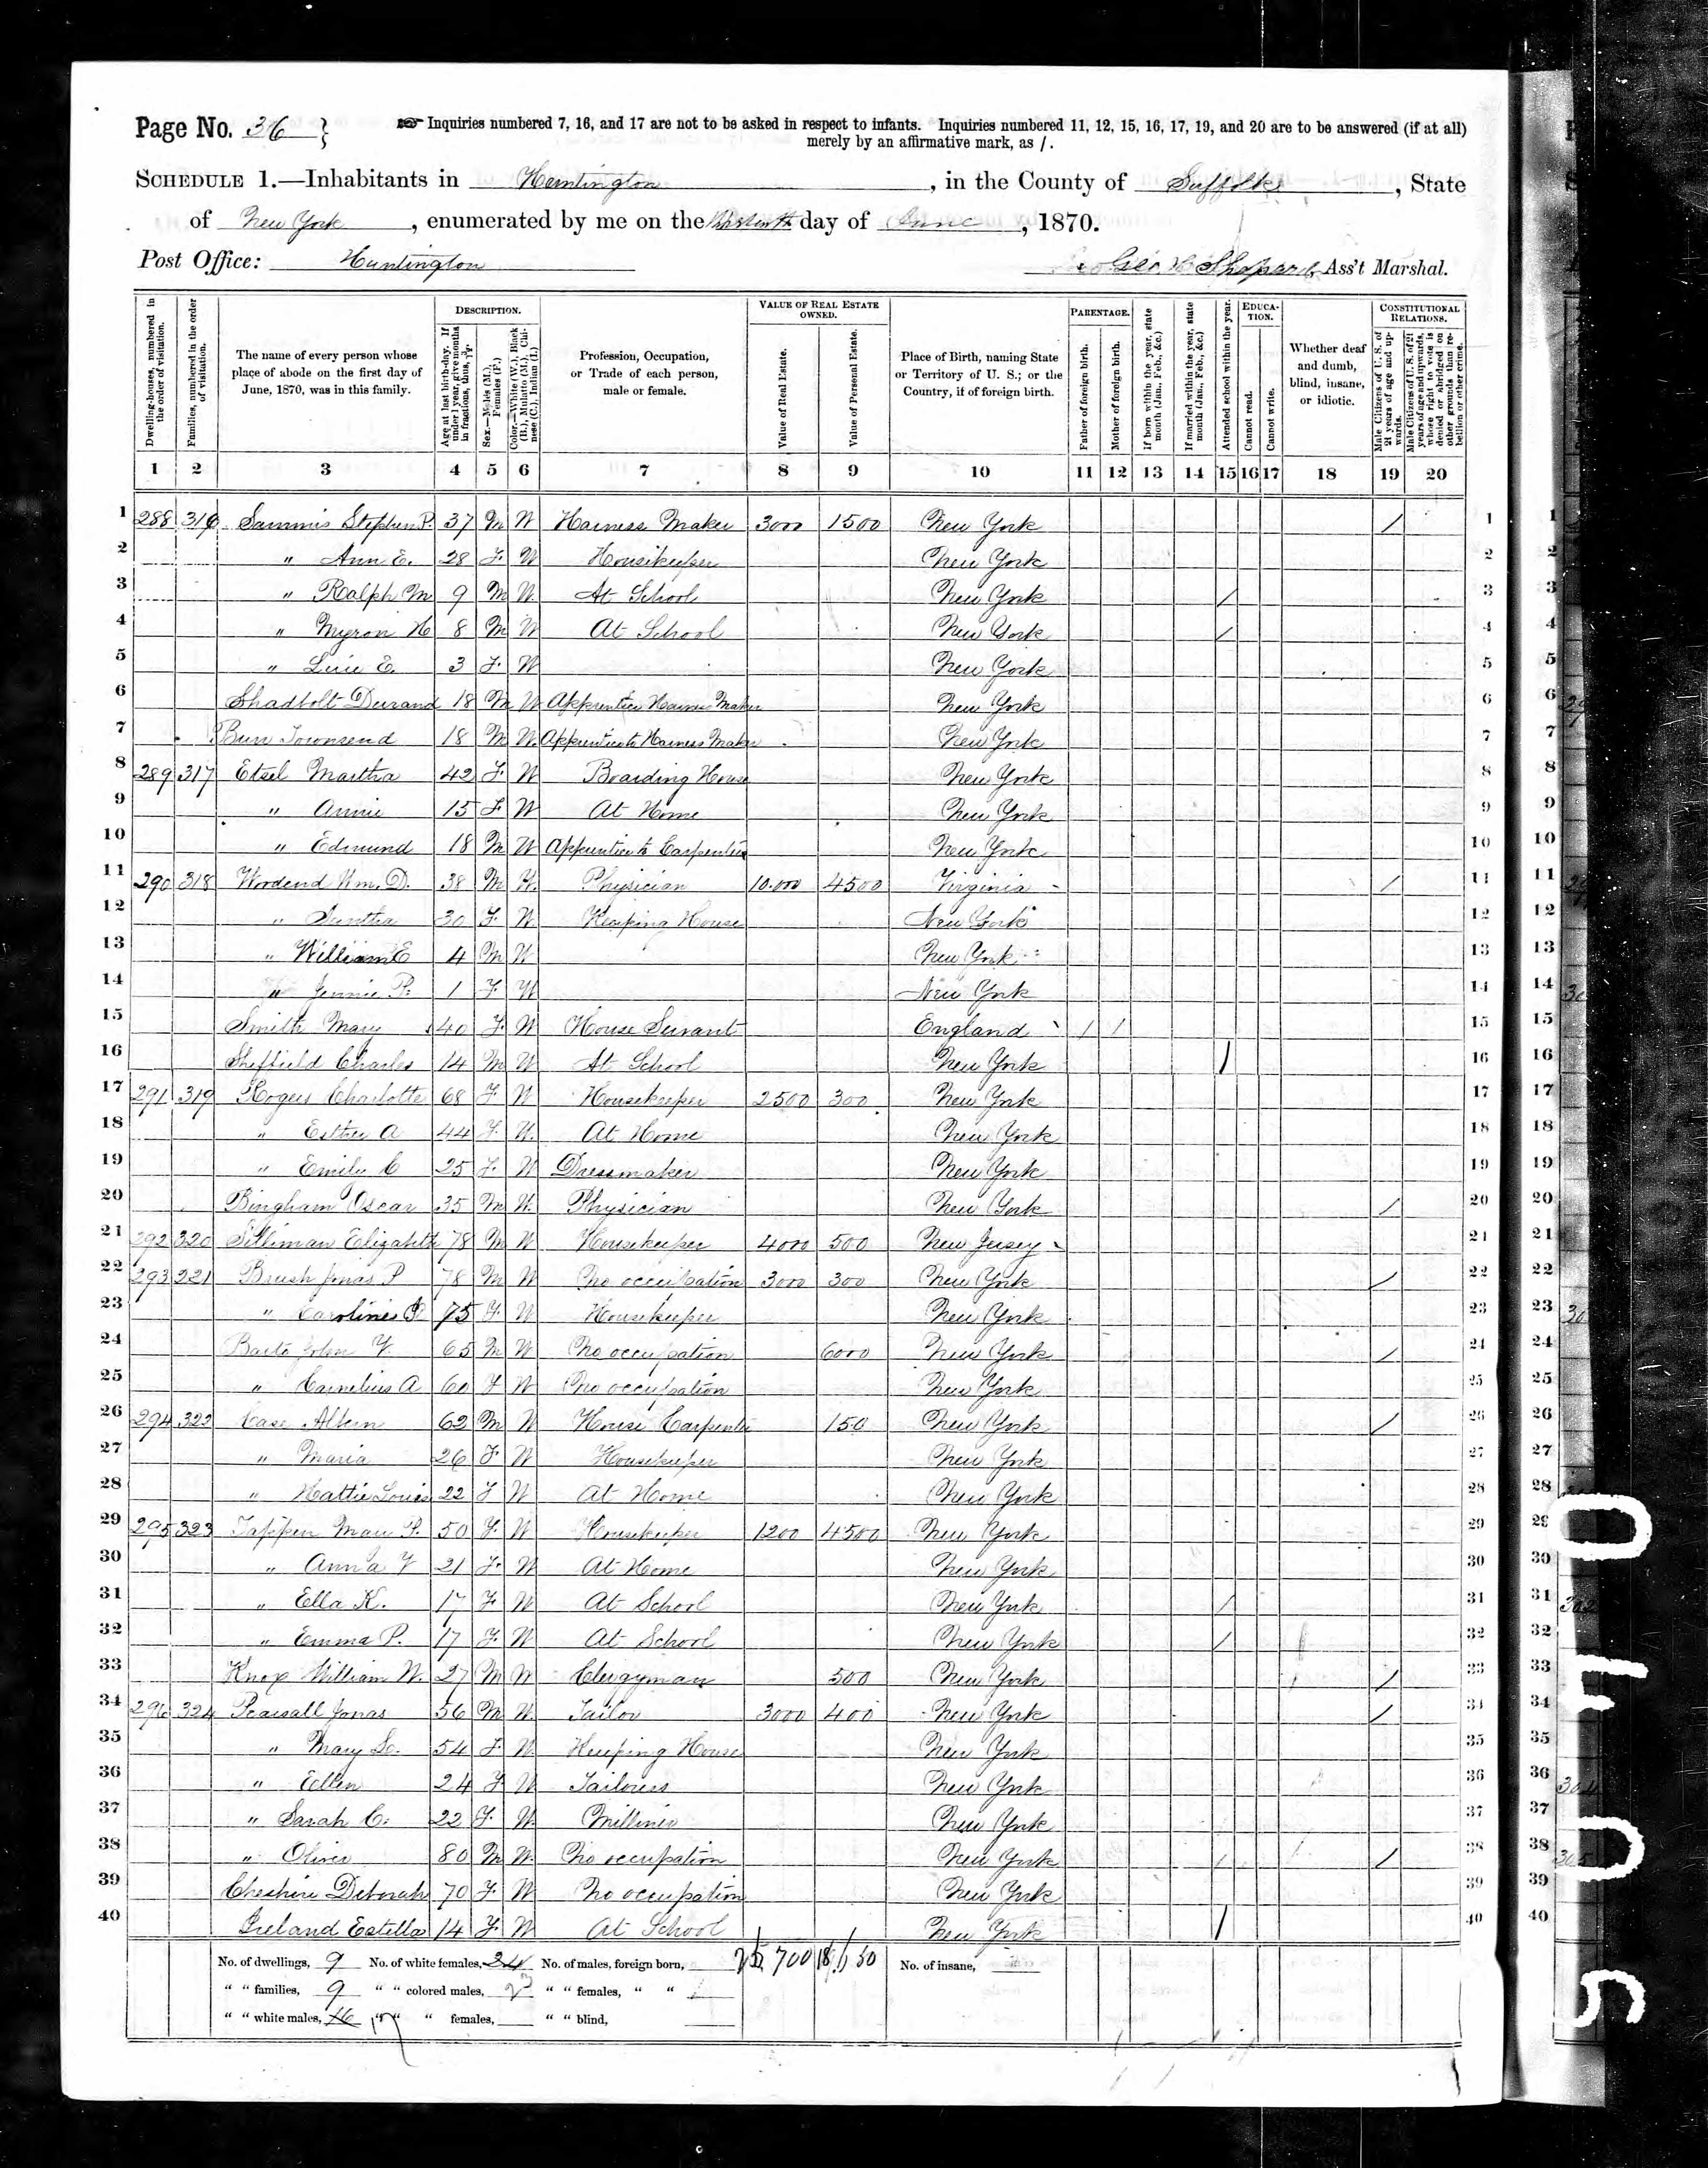 Page No. 36
☞ Inquiries numbered 7, 16, and 17 are not to be asked in respect to infants. Inquiries numbered 11, 12, 15, 16, 17, 19, and 20 are to be answered (if at all)
merely by an affirmative mark, as /.
SCHEDULE 1.—Inhabitants in Huntington, in the County of Suffolk, State
of New York, enumerated by me on the day of June, 1870.
Post Office: Huntington
Geo H Shepard, Ass't Marshal.
DESCRIPTION.
VALUE OF REAL ESTATE OWNED.
PARENTAGE.
EDUCATION.
CONSTITUTIONAL RELATIONS.
Dwelling-houses, numbered in the order of visitation.
Families, numbered in the order of visitation.
The name of every person whose place of abode on the first day of June, 1870, was in this family.
Age at last birth-day. If under 1 year, give months in fractions, thus, 3/12.
Sex.—Males (M.), Females (F.)
Color.—White (W.), Black (B.), Mulatto (M.), Chinese (C.), Indian (I.)
Profession, Occupation, or Trade of each person, male or female.
Value of Real Estate.
Value of Personal Estate.
Place of Birth, naming State or Territory of U. S.; or the Country, if of foreign birth.
Father of foreign birth.
Mother of foreign birth.
If born within the year, state month (Jan., Feb., &c.)
If married within the year, state month (Jan., Feb., &c.)
Attended school within the year.
Cannot read.
Cannot write.
Whether deaf and dumb, blind, insane, or idiotic.
Male Citizens of U. S. of 21 years of age and upwards.
Male Citizens of U. S. of 21 years of age and upwards, whose right to vote is denied or abridged on other grounds than rebellion or other crime.
1 2 3 4 5 6 7 8 9 10 11 12 13 14 15 16 17 18 19 20
1 288 316 Sammis Stephen P. 37 M W Harness Maker 3000 1500 New York / 1
2 " Ann E. 28 F W Housekeeper New York 2
3 " Ralph M 9 M W At School New York / 3
4 " Myron H 8 M W At School New York / 4
5 " E. 3 F W New York 5
6 Shadbolt Durand 18 M W Apprentice Harness Maker New York 6
7 Burr Townsend 18 M W Apprentice to Harness Maker New York 7
8 289 317 Etsel Martha 42 F W Boarding House New York 8
9 " Annie 15 F W At Home New York 9
10 " Edmund 18 M W Apprentice to Carpenter New York 10
11 290 318 Woodend Wm. D. 38 M W Physician 10.000 4500 Virginia / 11
12 " 30 F W Keeping House New York 12
13 " William E 4 M W New York 13
14 " Jennie P. 1 F W New York 14
15 Smith Mary 40 F W House Servant England / / 15
16 Sheffield Charles 14 M W At School New York / 16
17 291 319 Rogers Charlotte 68 F W Housekeeper 2500 300 New York 17
18 " Esther A 44 F W At Home New York 18
19 " Emily C 25 F W Dressmaker New York 19
20 Bingham Oscar 35 M W Physician New York / 20
21 292 320 Silliman Elizabeth 78 M W Housekeeper 4000 500 New Jersey 21
22 293 321 Brush Jonas P 78 M W No occupation 3000 300 New York / 22
23 " Caroline P 75 F W Housekeeper New York 23
24 John Y 65 M W No occupation 6000 New York / 24
25 " Cornelius A 60 F W No occupation New York 25
26 294 322 Case 62 M W House Carpenter 150 New York / 26
27 " Maria 26 F W Housekeeper New York 27
28 " Hattie Louis 22 F W At Home New York 28
29 295 323 Tappen Mary P. 50 F W Housekeeper 1200 4500 New York 29
30 " Anna Y 21 F W At Home New York 30
31 " Ella K. 17 F W At School New York / 31
32 " Emma P. 17 F W At School New York / 32
33 Knox William W. 27 M W Clergyman 500 New York / 33
34 296 324 Pearsall Jonas 56 M W Tailor 3000 400 New York / 34
35 " Mary S. 54 F W Keeping House New York 35
36 " Ellen 24 F W Tailoress New York 36
37 " Sarah C. 22 F W Milliner New York 37
38 " Oliver 80 M W No occupation New York / 38
39 Cheshire Deborah 70 F W No occupation New York 39
40 Ireland Estella 14 F W At School New York / 40
No. of dwellings, 9 No. of white females, 24 No. of males, foreign born, No. of insane,
" " families, 9 " " colored males, " " females, " "
" " white males, 16 " " females, " " blind,